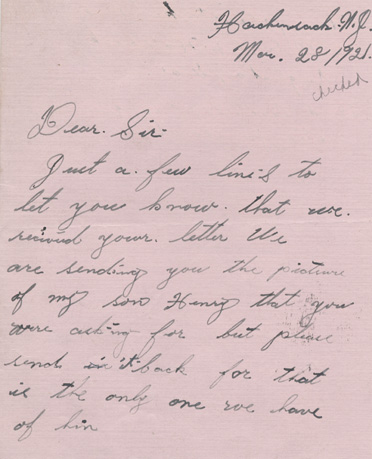 Hackensack. N.J.
Mar. 28/1921.
checked
Dear. Sir.
Just a. few lines to
let you know. that we.
recived your. letter We
are sending you the picture
of my son Henry that you
were asking for but please
send it back for that
is the only one we have
of him